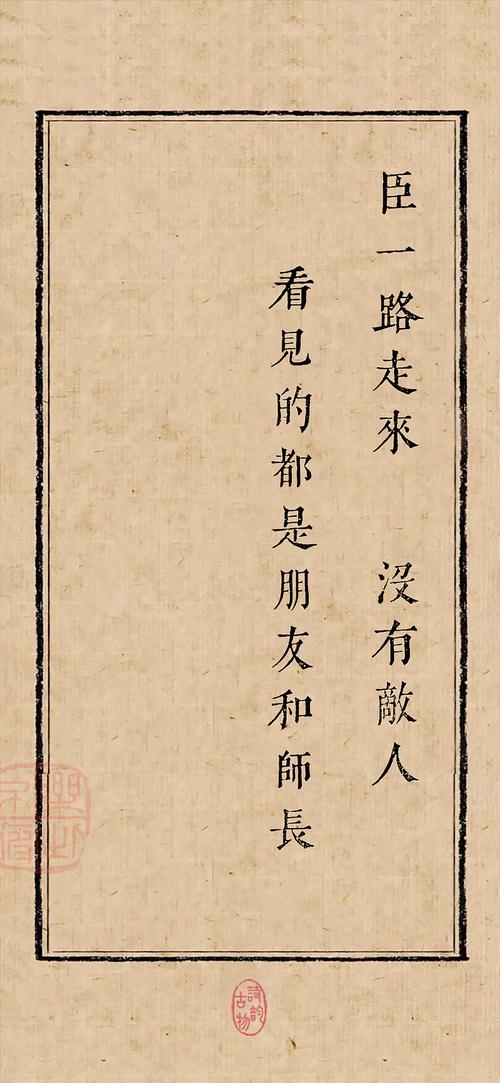 臣一路走來 沒有敵人
看見的都是朋友和師長
詩韵
古物